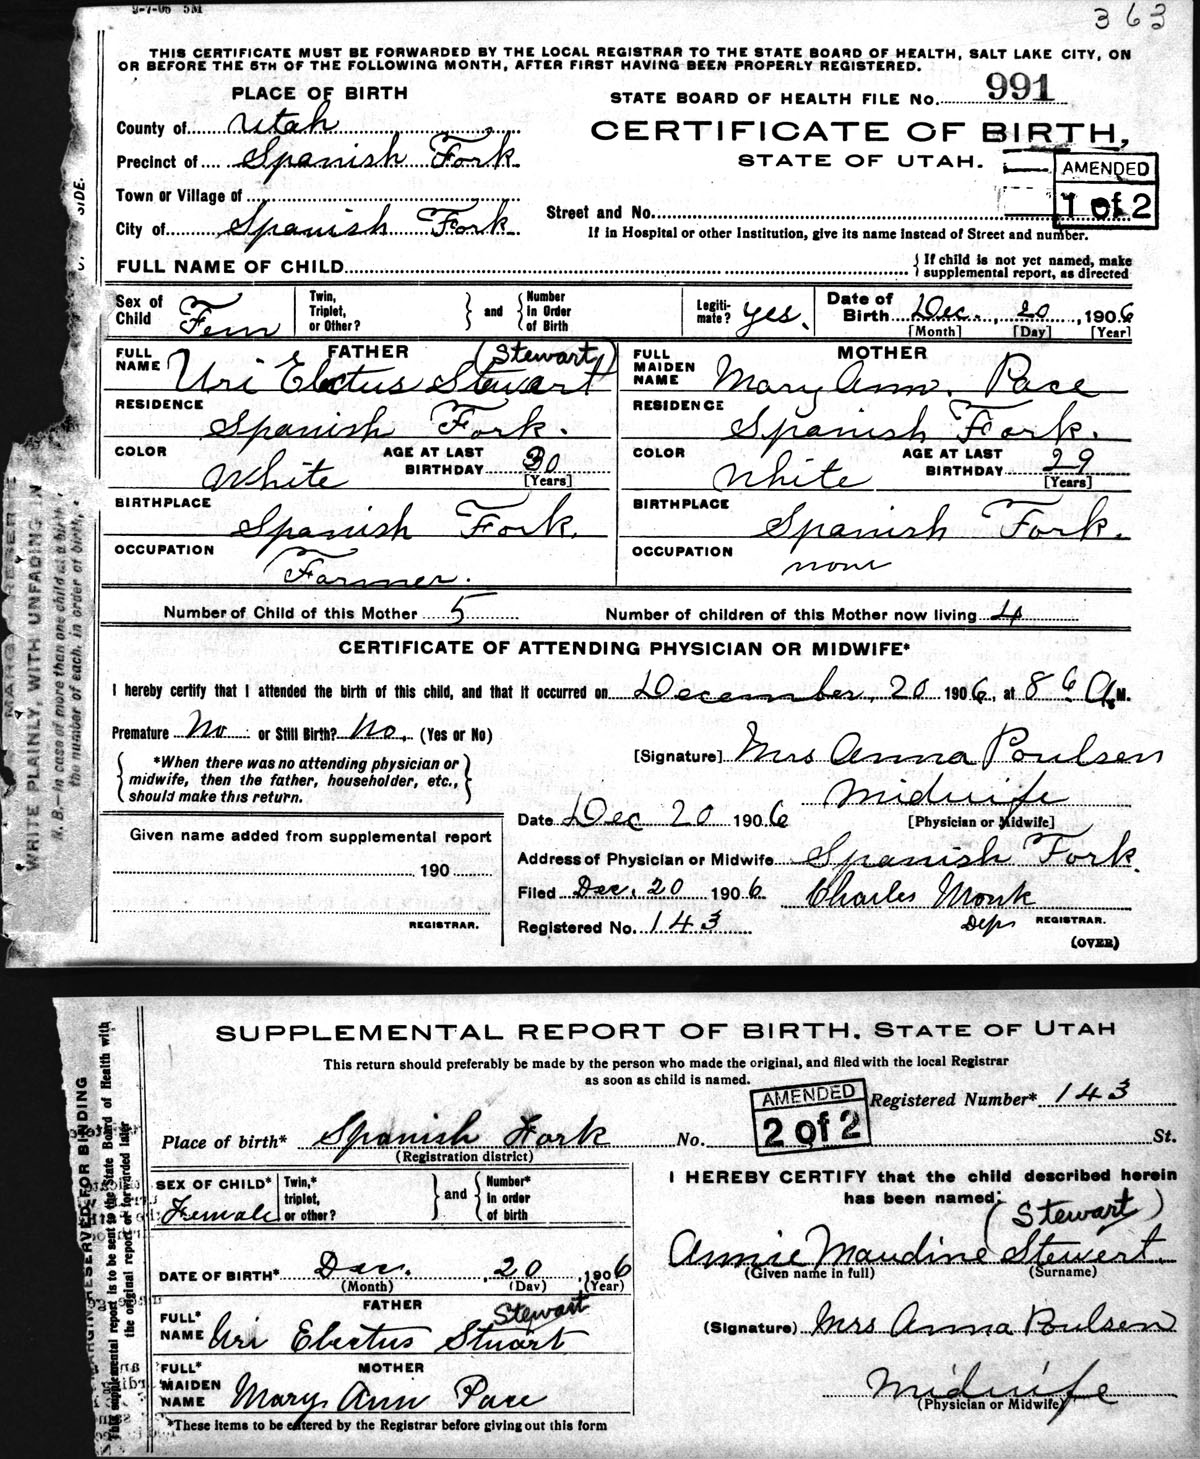 2-7-06 5M
363
THIS CERTIFICATE MUST BE FORWARDED BY THE LOCAL REGISTRAR TO THE STATE BOARD OF HEALTH, SALT LAKE CITY, ON
OR BEFORE THE 5TH OF THE FOLLOWING MONTH, AFTER FIRST HAVING BEEN PROPERLY REGISTERED.
PLACE OF BIRTH
STATE BOARD OF HEALTH FILE No. 991
County of Utah
CERTIFICATE OF BIRTH,
Precinct of Spanish Fork
STATE OF UTAH.
AMENDED
1 of 2
Town or Village of
Street and No.
City of Spanish Fork
If in Hospital or other Institution, give its name instead of Street and number.
FULL NAME OF CHILD
{ If child is not yet named, make
supplemental report, as directed
Sex of Child Fem
Twin, Triplet, or Other? } and { Number in Order of Birth
Legitimate? yes.
Date of Birth Dec. 20, 1906
[Month] [Day] [Year]
FATHER
FULL NAME Uri Electus Stewart (Stewart)
RESIDENCE Spanish Fork.
COLOR White
AGE AT LAST BIRTHDAY 30
[Years]
BIRTHPLACE Spanish Fork.
OCCUPATION Farmer.
MOTHER
FULL MAIDEN NAME Mary Ann. Pace
RESIDENCE Spanish Fork.
COLOR White
AGE AT LAST BIRTHDAY 29
[Years]
BIRTHPLACE Spanish Fork.
OCCUPATION none
Number of Child of this Mother 5
Number of children of this Mother now living 4
CERTIFICATE OF ATTENDING PHYSICIAN OR MIDWIFE*
I hereby certify that I attended the birth of this child, and that it occurred on December, 20 1906, at 8 A M.
Premature No or Still Birth? No. (Yes or No)
*When there was no attending physician or
midwife, then the father, householder, etc.,
should make this return.
[Signature] Mrs Anna Poulsen
Midwife
[Physician or Midwife]
Date Dec 20 1906
Given name added from supplemental report
190
REGISTRAR.
Address of Physician or Midwife Spanish Fork.
Filed Dec. 20 1906 Charles Monk
Registered No. 143 Dep REGISTRAR.
(OVER)
WRITE PLAINLY, WITH UNFADING IN
N. B.—In case of more than one child at a birth
the number of each, in order of birth,
SIDE.
SUPPLEMENTAL REPORT OF BIRTH, STATE OF UTAH
This return should preferably be made by the person who made the original, and filed with the local Registrar
as soon as child is named.
AMENDED
2 of 2
Registered Number* 143
Place of birth* Spanish Fork No. St.
(Registration district)
SEX OF CHILD* Female
Twin,* triplet, or other? } and { Number* in order of birth
DATE OF BIRTH* Dec. 20, 1906
(Month) (Day) (Year)
FATHER
FULL* NAME Uri Electus Stuart Stewart
MOTHER
FULL* MAIDEN NAME Mary Ann Pace
*These items to be entered by the Registrar before giving out this form
I HEREBY CERTIFY that the child described herein
has been named:
(Stewart)
Annie Maudine Stewert.
(Given name in full) (Surname)
(Signature) Mrs Anna Poulsen
Midwife
(Physician or Midwife)
MARGIN RESERVED FOR BINDING
This supplemental report is to be sent to the State Board of Health with
the original report or forwarded later